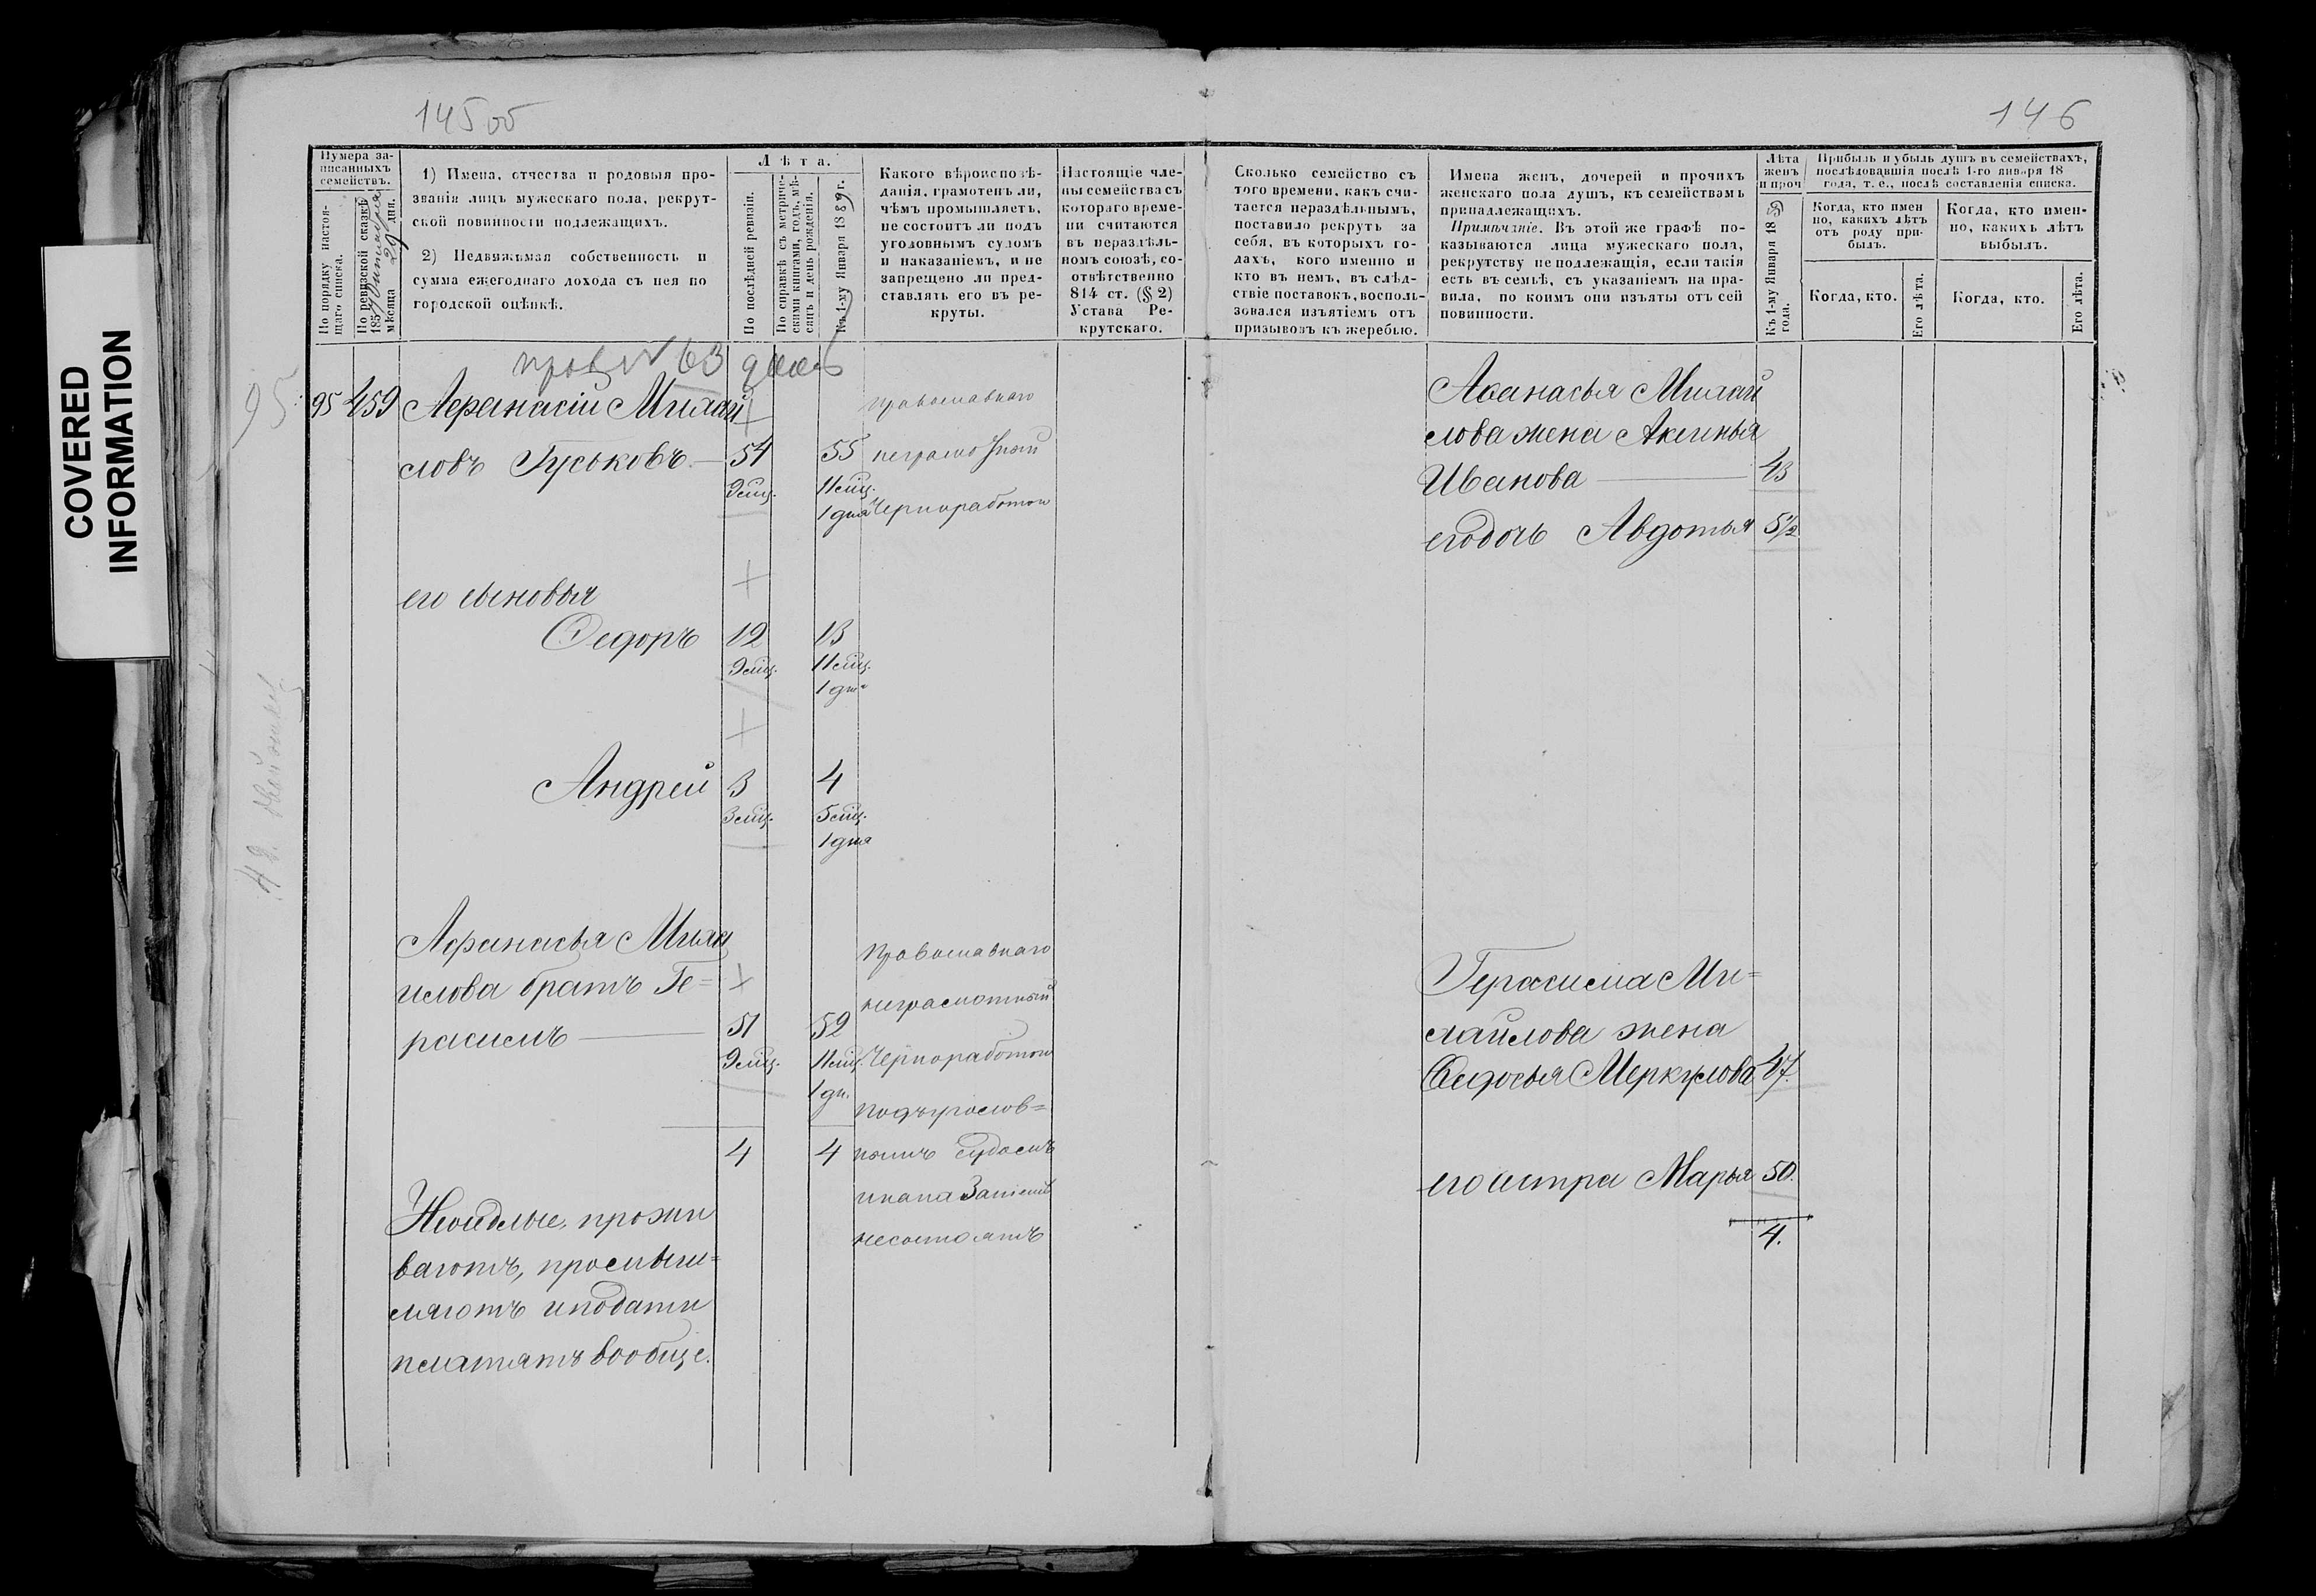 COVERED
INFORMATION
145 об
146
Нумера за-
писанныхъ
семействъ.
По порядку настоя-
щаго списка.
По ревизской сказкѣ
185
мѣсяца 29 дня.
1) Имена, отчества и родовыя про-
званія лицъ мужескаго пола, рекрут-
ской повинности подлежащихъ.
2) Недвижимая собственность и
сумма ежегоднаго дохода съ нея по
городской оцѣнкѣ.
Лѣта.
По послѣдней ревизіи.
По справкѣ съ метриче-
скими книгами, годъ, мѣ-
сяцъ и день рожденія.
Къ 1-му Января 1859 г.
Какого вѣроисповѣ-
данія, грамотенъ ли,
чѣмъ промышляетъ,
не состоитъ ли подъ
уголовнымъ судомъ
и наказаніемъ, и не
запрещено ли пред-
ставлять его въ ре-
круты.
Настоящіе чле-
ны семейства съ
котораго време-
ни считаются
въ нераздѣль-
номъ союзѣ, со-
отвѣтственно
814 ст. (§ 2)
Устава Ре-
крутскаго.
Сколько семейство съ
того времени, какъ счи-
тается нераздѣльнымъ,
поставило рекрутъ за
себя, въ которыхъ го-
дахъ, кого именно и
кто въ немъ, въ слѣд-
ствіе поставокъ, восполь-
зовался изъятіемъ отъ
призывовъ къ жеребью.
Имена женъ, дочерей и прочихъ
женскаго пола душъ, къ семействамъ
принадлежащихъ.
Примѣчаніе. Въ этой же графѣ по-
казываются лица мужескаго пола,
рекрутству неподлежащія, если такія
есть въ семьѣ, съ указаніемъ на пра-
вила, по коимъ они изъяты отъ сей
повинности.
Лѣта
женъ
и проч
Къ 1-му Января 18
года.
Прибыль и убыль душъ въ семействахъ,
послѣдовавшія послѣ 1-го января 18
года, т. е., послѣ составленія списка.
Когда, кто имен
но, какихъ лѣтъ
отъ роду при-
былъ.
Когда, кто имен-
но, какихъ лѣтъ
выбылъ.
Когда, кто.
Его лѣта.
Когда, кто.
Его лѣта.
№ 63
95
95 459 Афанасій Михай
ловъ Гуськовъ 54 55
9 мѣц. 11 мѣц.
1 дня
православнаго
неграмотный
Чернорабочій
его сыновья
Федоръ 12 13
9 мѣц. 11 мѣц.
1 дня
Андрей 3 4
3 мѣц. 5 мѣц.
1 дня
Афанасья Миха
илова братъ Ге=
расимъ 51 52
9 мѣц. 11 мѣц.
1 дн.
Православнаго
неграмотный
Чернорабочій
подъуголов=
нымъ Судомъ
несостоятъ
4 4
Несидлые, прожи
ваютъ, промыш=
ляютъ иподати
платятъ вообще.
Афанасья Михай
лова жена Аксинья
Иванова 43
егодочь Авдотья 5½
Герасима Ми=
хайлова жена
Федосья Меркулова 47.
его сестра Марья 50.
4.